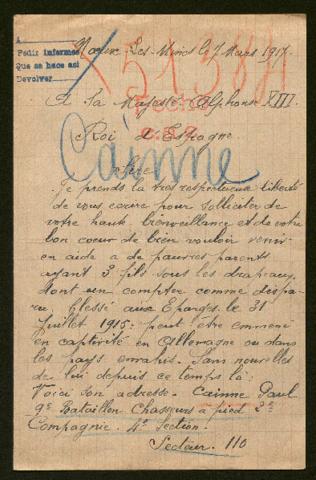 A
Pedir informes
Que se hace así
Devolver
51384
Noeux-les-Mines le 7 Mars 1917.
A Sa Majesté Alphonse XIII
Roi d'Espagne
Cainne
Sire
Je prends la très respectueuse liberté
de vous écrire pour solliciter de
votre haute bienveillance et de votre
bon coeur de bien vouloir venir
en aide a de pauvres parents
ayant 3 fils sous les drapeaux
dont un compter comme dispa-
ru, blessé aux Eparges le 31
Juillet 1915 peut être emmené
en captivité en Allemagne ou dans
les pays envahis. Sans nouvelles
de lui depuis ce temps là.
Voici son adresse. Cainne Paul
9e Bataillon Chasseurs à pied 2e
Compagnie. 4e Section.
Secteur. 110